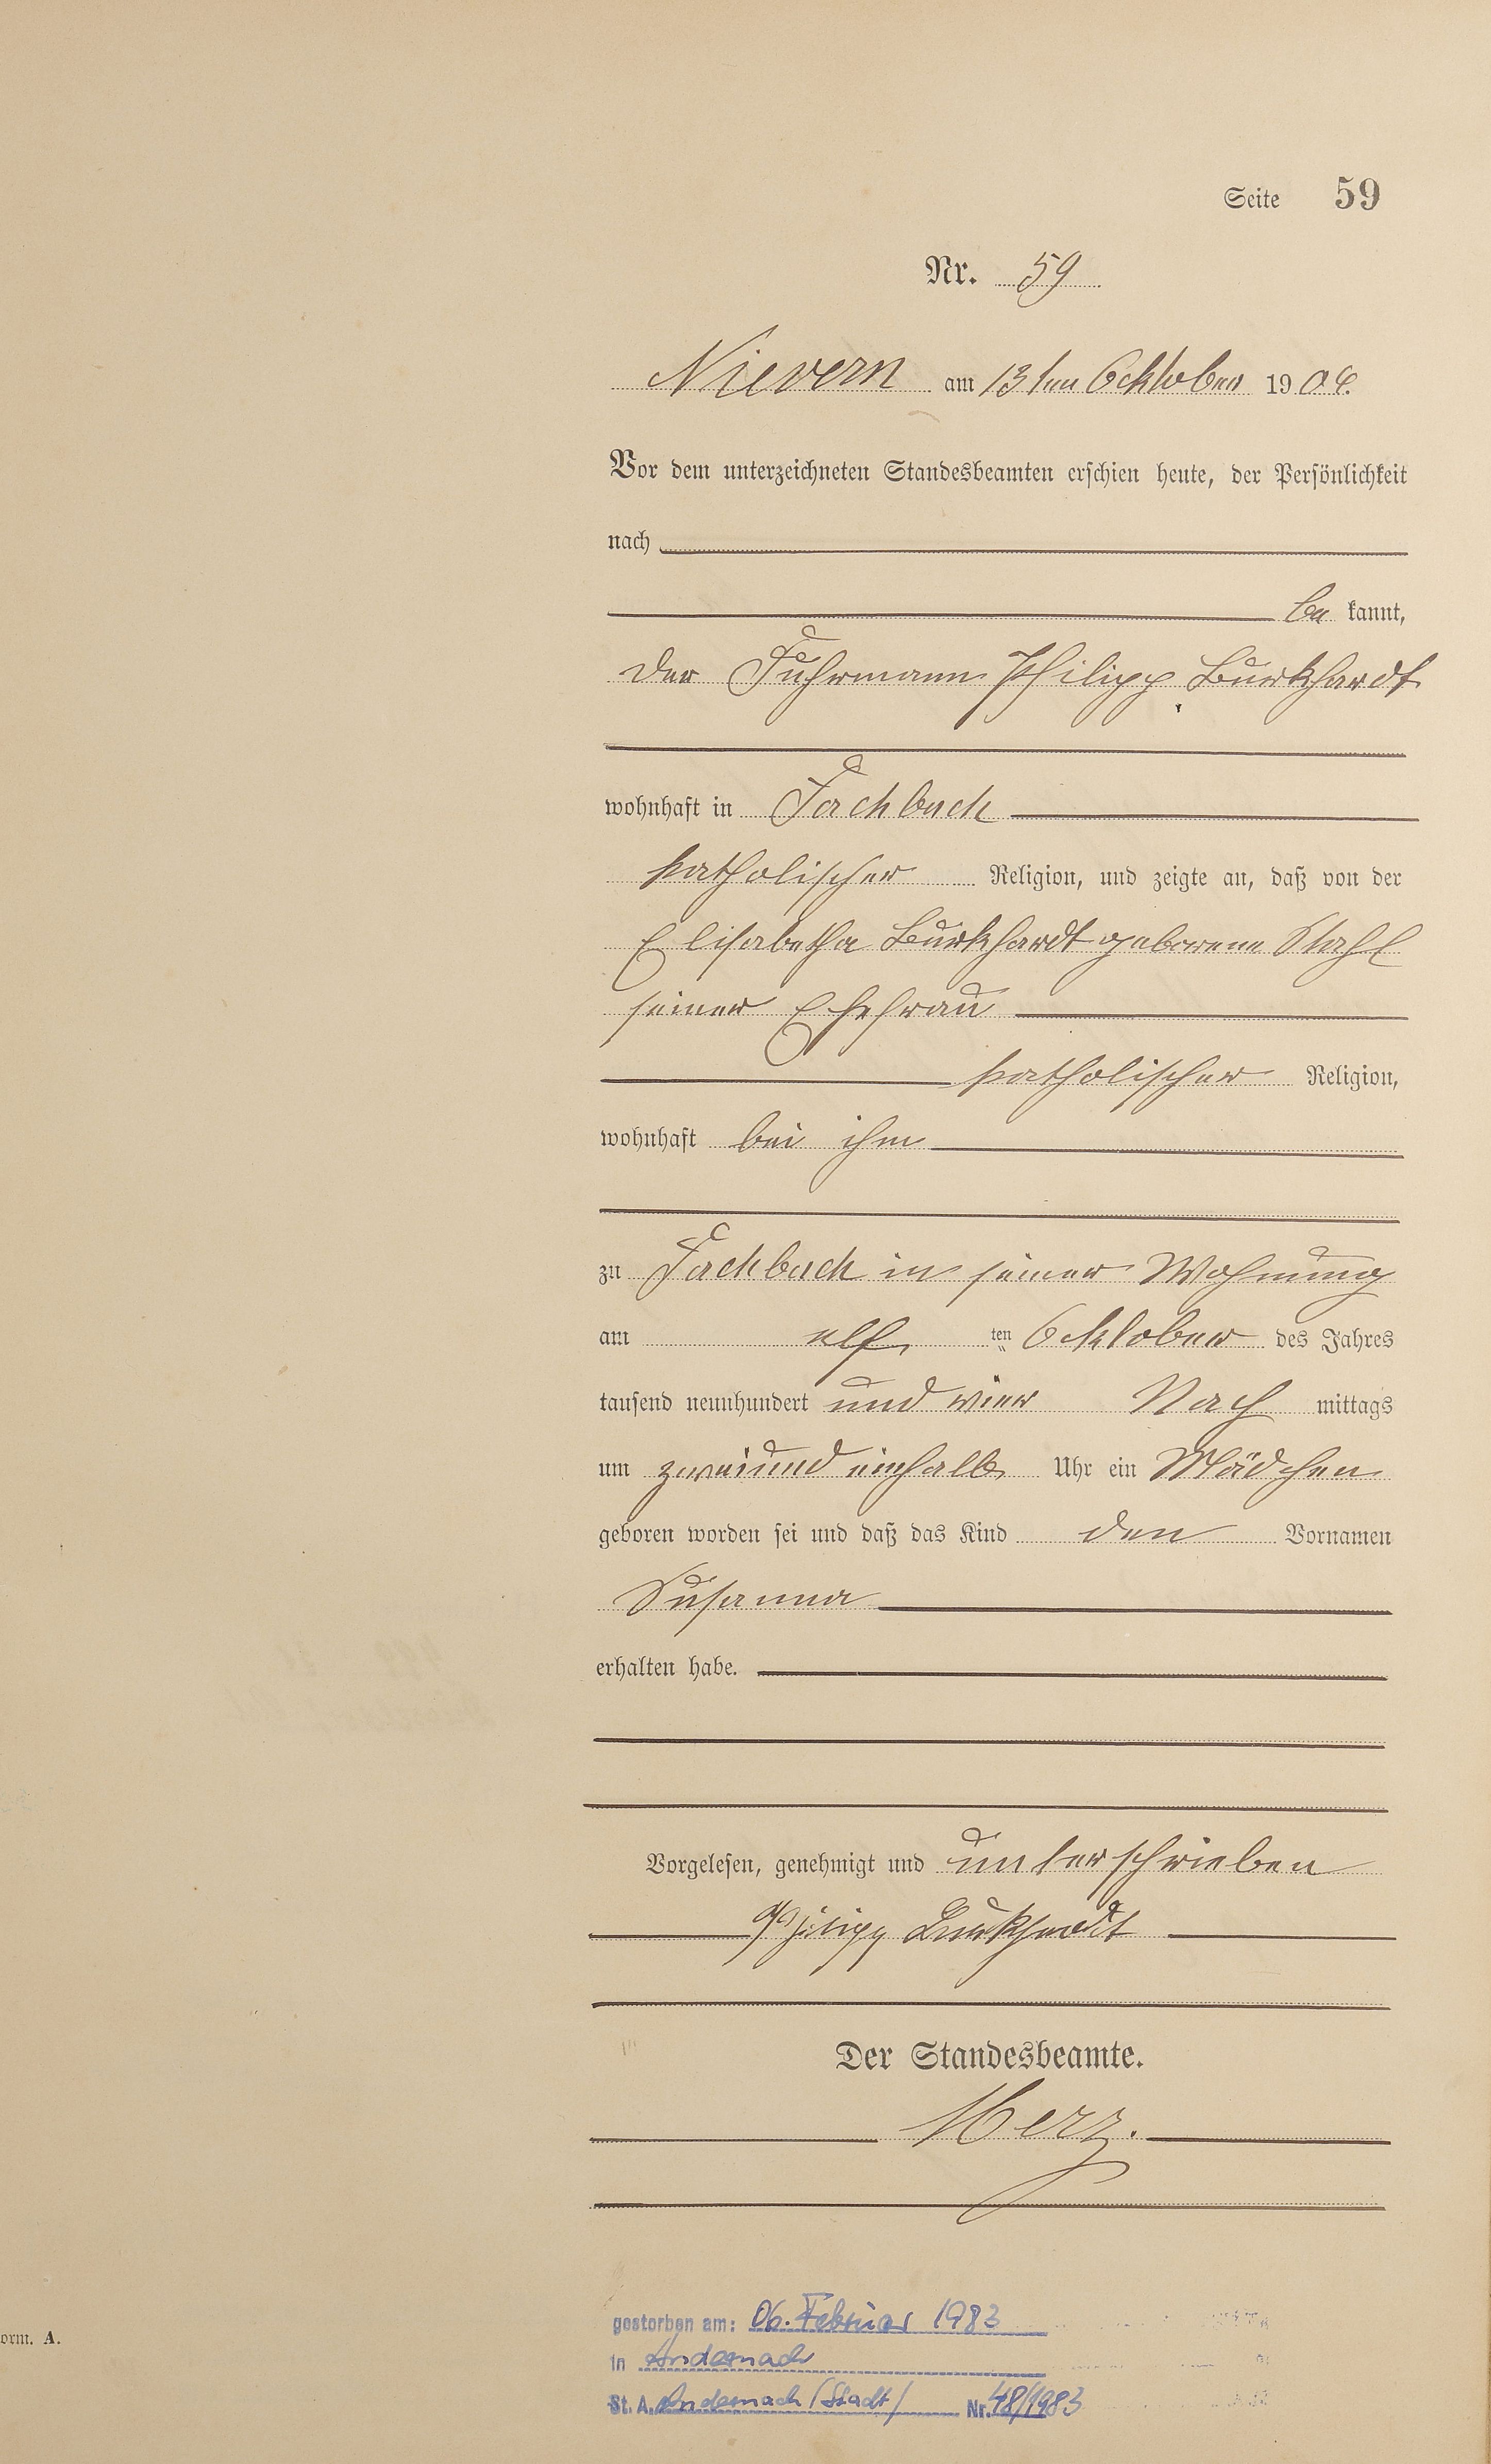 Seite 59
Nr. 59
Nievern am 13ten Oktober 1904.
Vor dem unterzeichneten Standesbeamten erschien heute, der Persönlichkeit
nach
be kannt,
der Fuhrmann Philipp Burkhardt
wohnhaft in Fachbach
katholischer Religion, und zeigte an, daß von der
Elisabetha Burkhardt geborene Stahl
seiner Ehefrau
katholischer Religion,
wohnhaft bei ihm
zu Fachbach in seiner Wohnung
am elf ten Oktober des Jahres
tausend neunhundert und vier Nach mittags
um zweiundeinhalb Uhr ein Mädchen
geboren worden sei und daß das Kind den Vornamen
Susanna
erhalten habe.
Vorgelesen, genehmigt und unterschrieben
Philipp Burkhardt
Der Standesbeamte.
Herz.
orm. A.
gestorben am: 06. Februar 1983
in Andernach
St. A. Andernach (Stadt) Nr. 48/1983